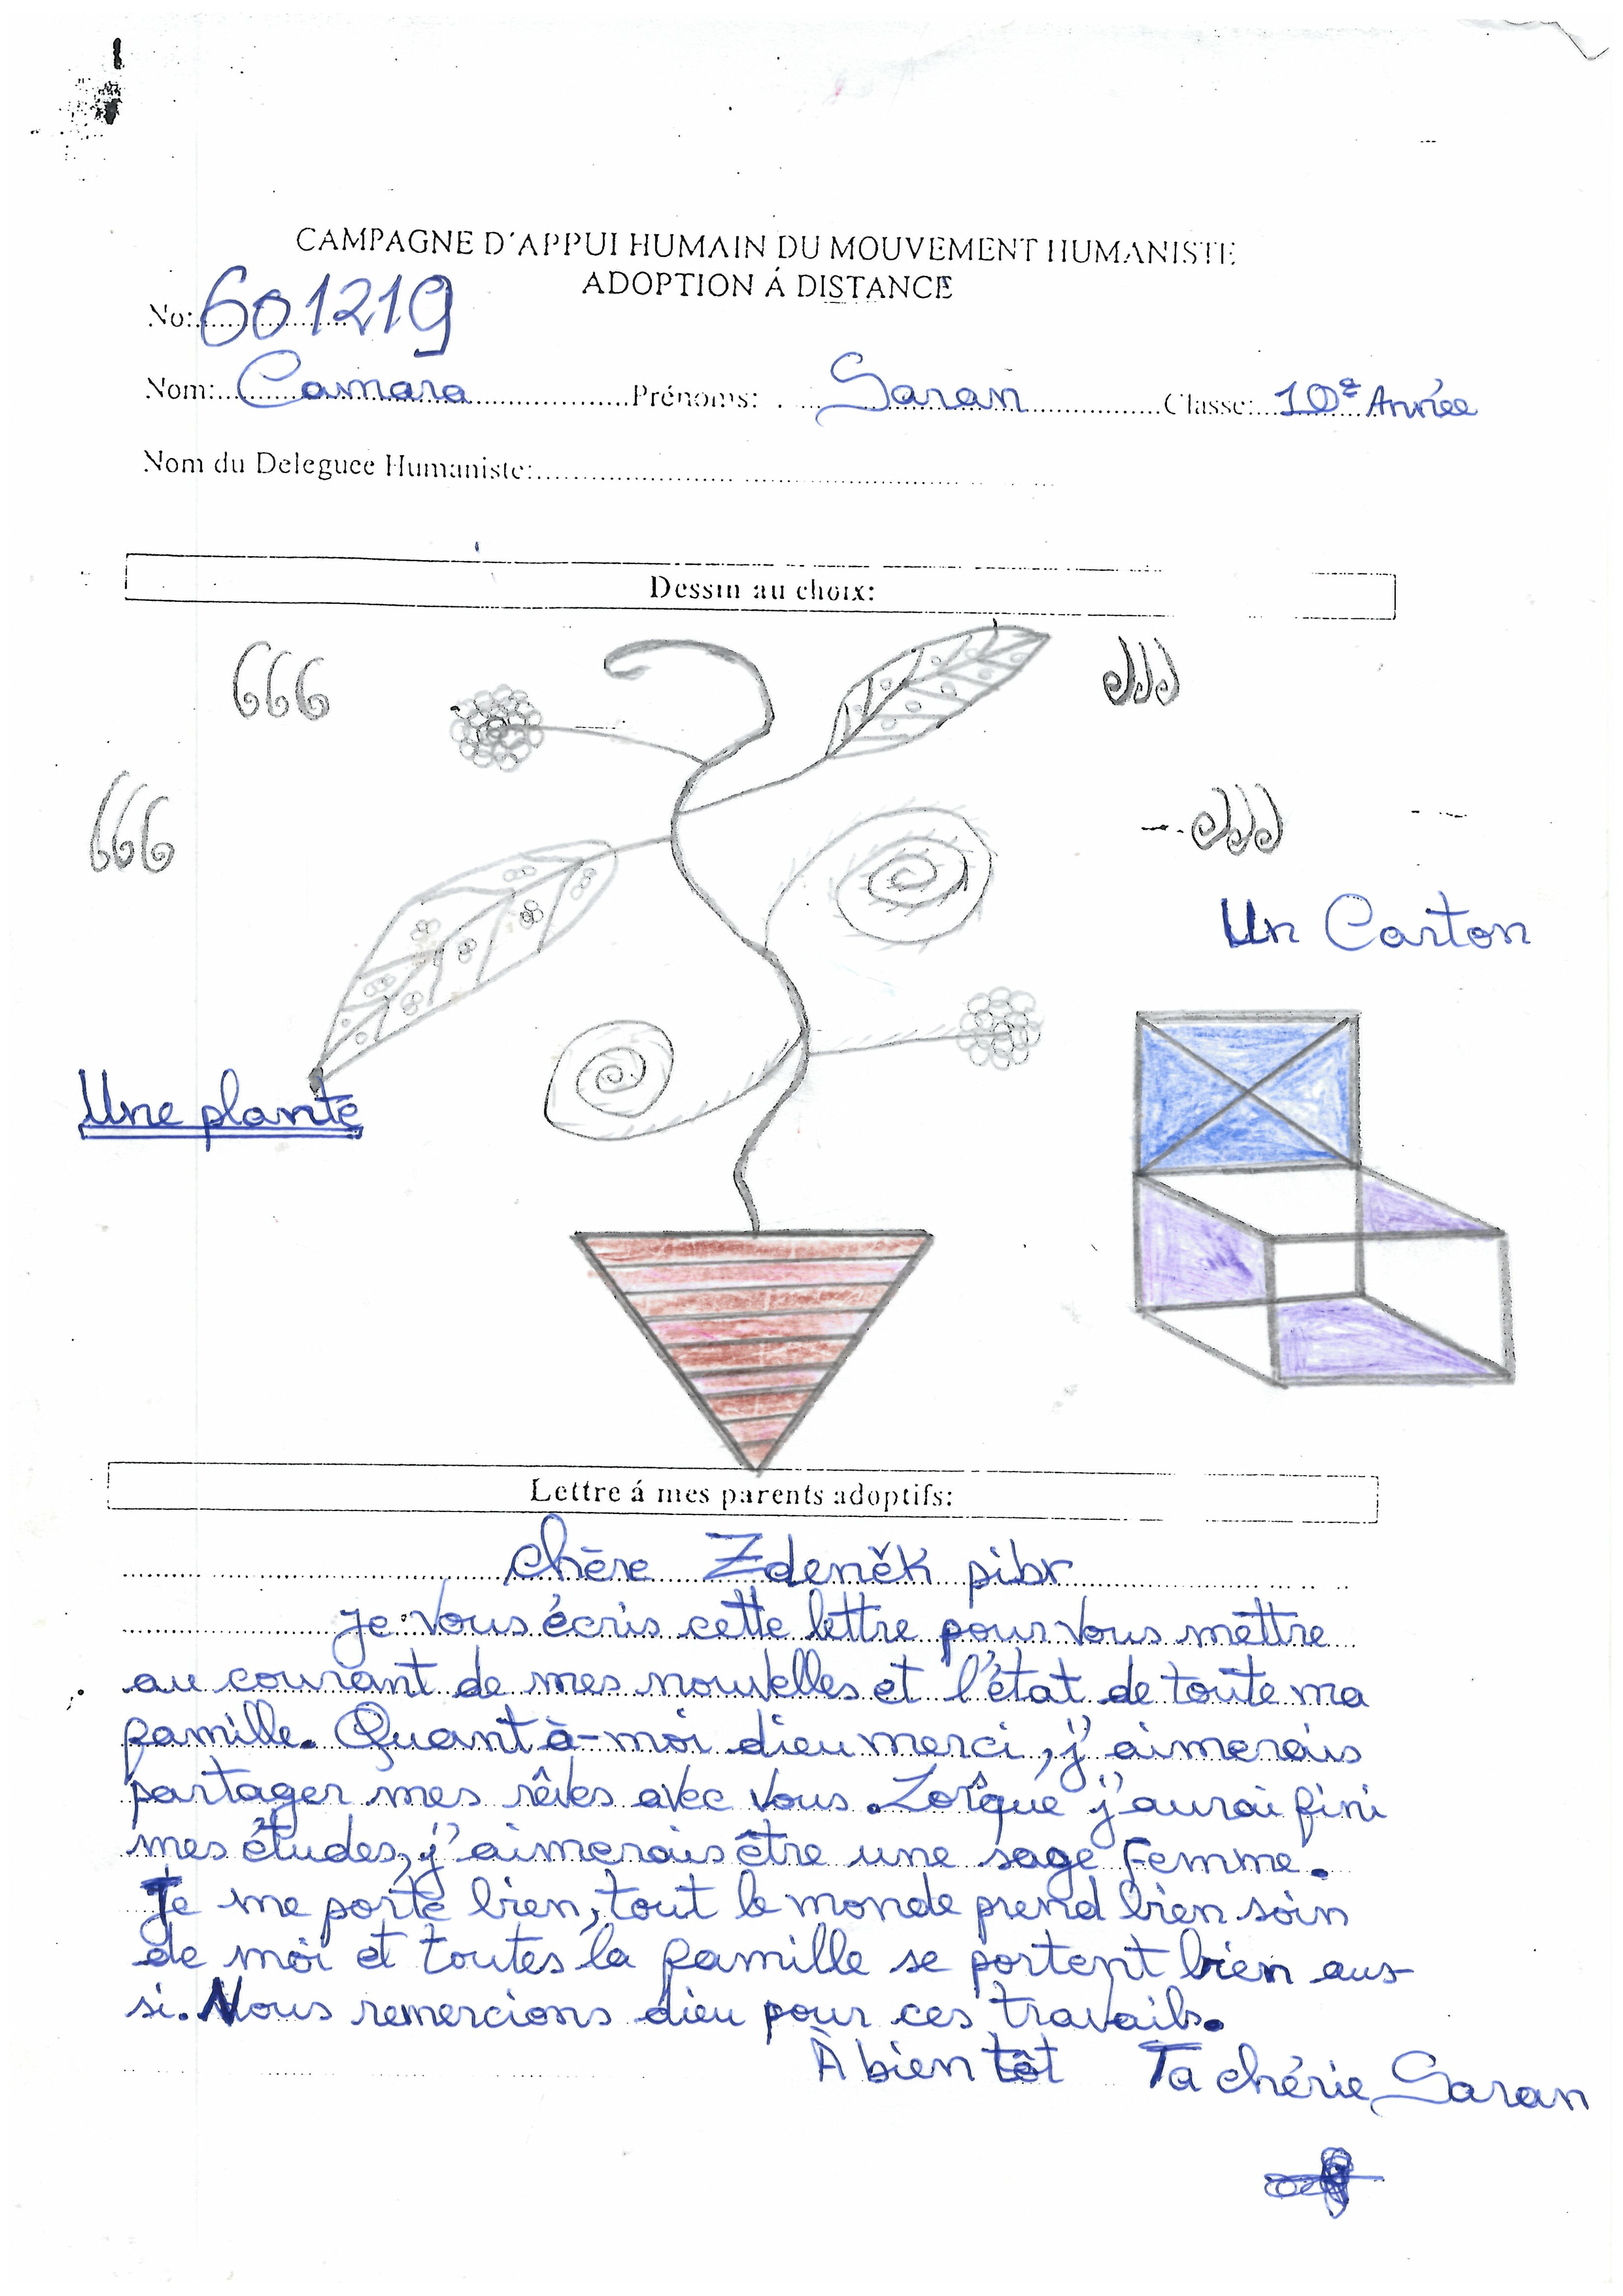 CAMPAGNE D'APPUI HUMAIN DU MOUVEMENT HUMANISTE
ADOPTION Á DISTANCE
No: 601219
Nom: Camara Prénoms: Saran Classe: 10e Année
Nom du Deleguee Humaniste:
Dessin au choix:
Un Carton
Une plante
Lettre á mes parents adoptifs:
Chère Zdeněk pibr
Je vous écris cette lettre pour vous mettre
au courant de mes nouvelles et l'état de toute ma
famille. Quant à-moi dieu merci, j'aimerais
partager mes rêves avec vous. Lorsque j'aurai fini
mes études, j'aimerais être une sage femme.
Je me porte bien, tout le monde prend bien soin
de moi et toutes la famille se portent bien aus-
si. Nous remercions dieu pour ces travails.
À bien tôt Ta chérie Saran